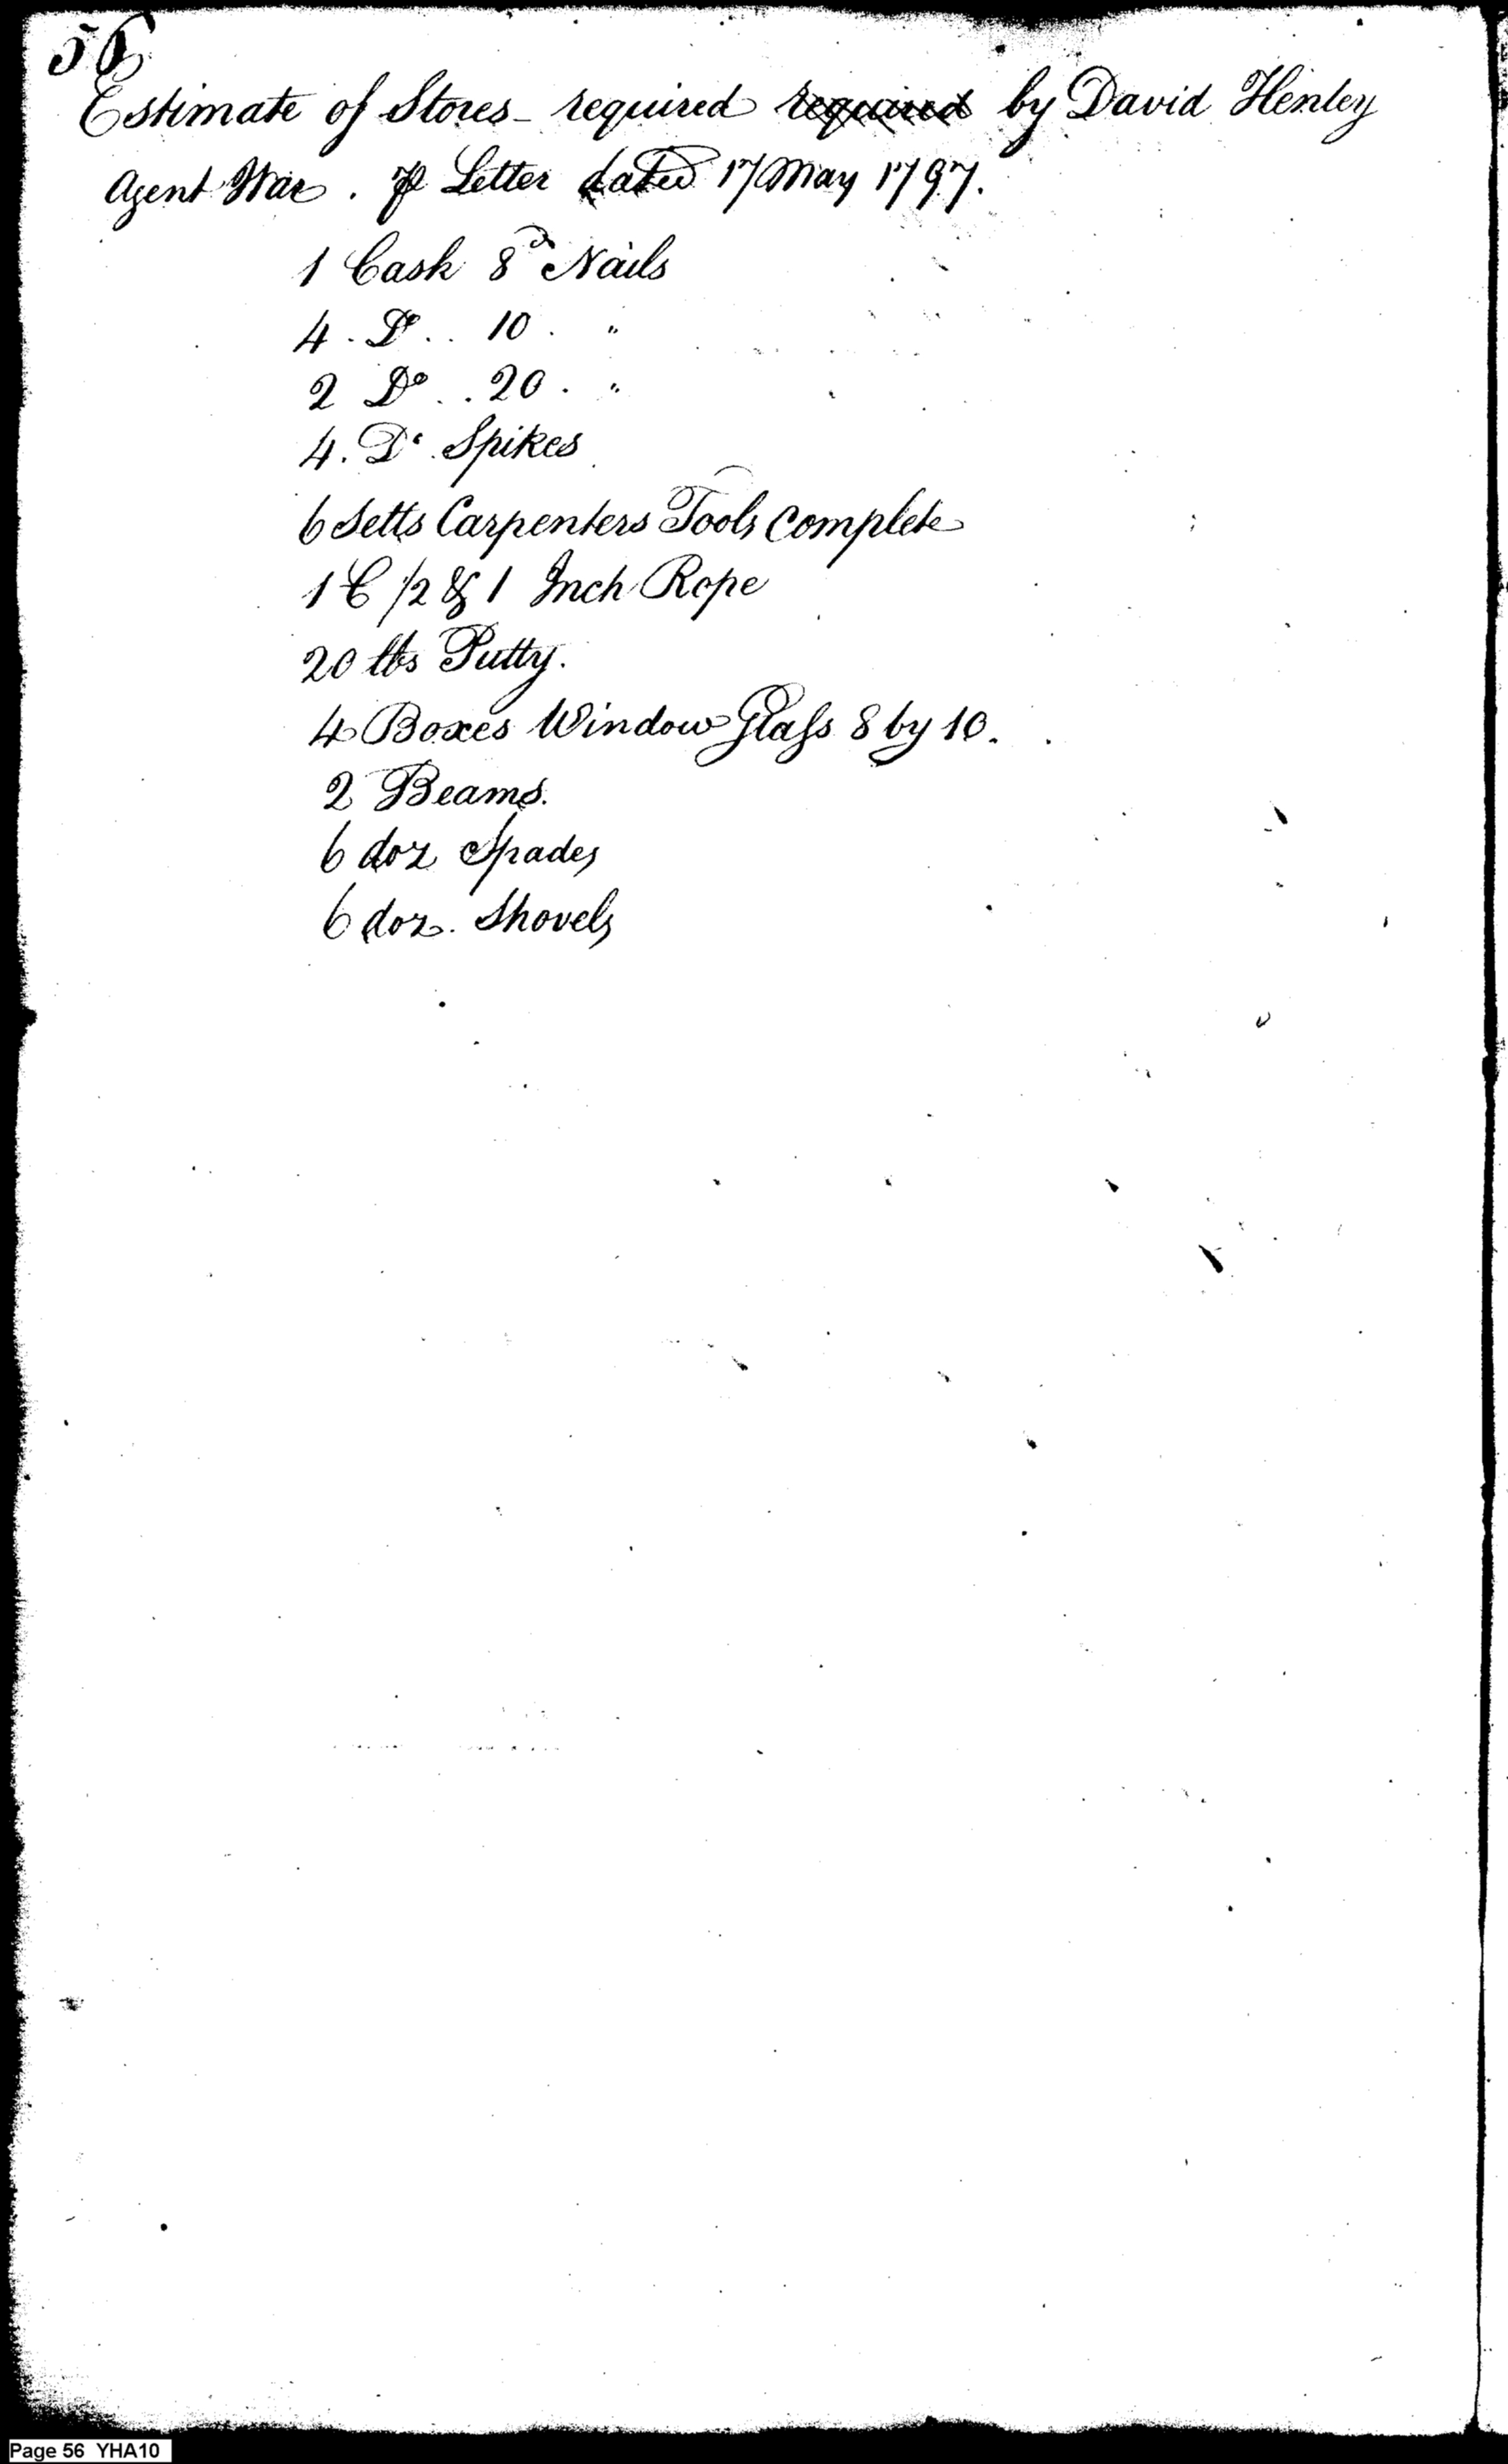 56
Estimate of Stores - required required by David Henley
Agent War . ⅌ Letter dated 17 May 1797.
1 Cask 8d Nails
4 . Do . . 10 . "
2 Do . . 20 . "
4 . Do . Spikes
6 Setts Carpenters Tools complete
1 C 1/2 & 1 Inch Rope
20 lbs Putty.
4 Boxes Window Glass 8 by 10 .
2 Beams.
6 doz Spades
6 doz. Shovels
Page 56 YHA10